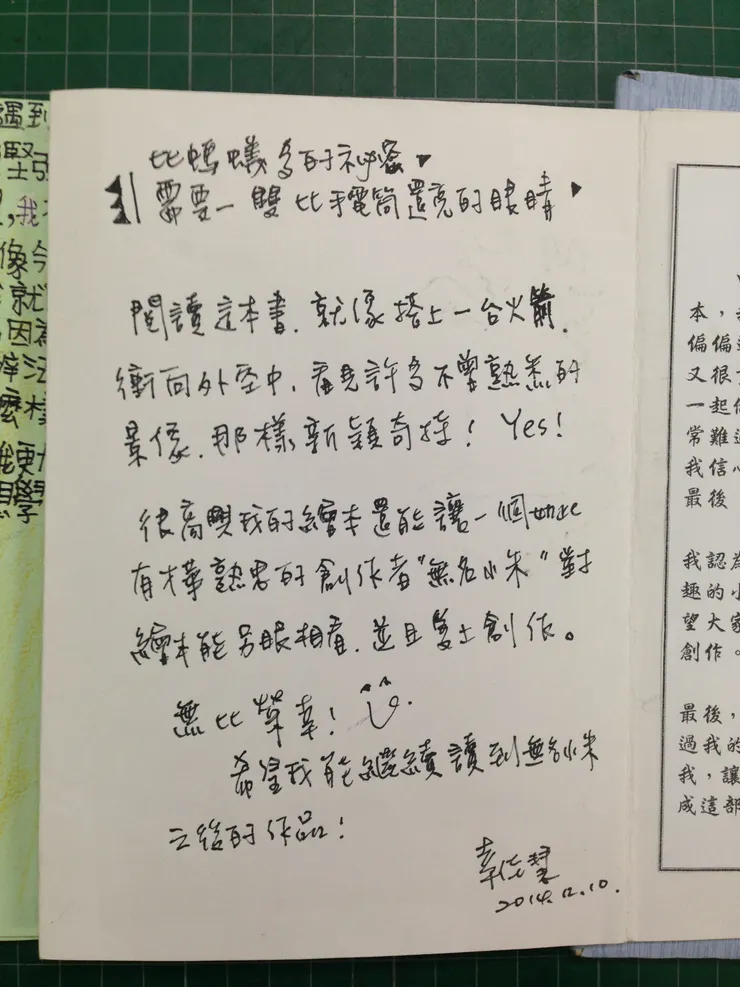 比螞蟻多的祕密
需要一雙比手電筒還亮的眼睛
閱讀這本書,就像搭上一台火箭,
衝向外空中,看見許多不曾熟悉的
景像,那樣新穎奇特! Yes!
很高興我的繪本還能讓一個如此
有才華熟思的創作者"無名小米"對
繪本能另眼相看,並且愛上創作。
無比榮幸!
希望我能繼續讀到無名小米
之後的作品!
2014.12.10.
遇到
堅強
,我
像今
就
因為
麼樣
更
學
本,
偏偏
又很
一起
常難
我信心
最後
我認為
趣的小
望大家
創作。
最後,
過我的
我,讓
成這部